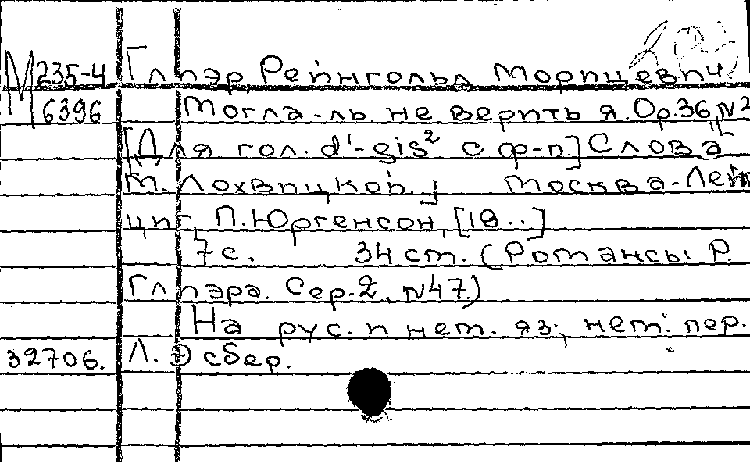 М 235-4 Глиэр, Рейнгольд Морицевич.
6396 Могла-ль не верить я. Op.36, N2
[Для гол. d¹-gis² с ф-п] Слова
М. Лохвицкой.] Москва-Лейп
циг, П. Юргенсон, [18..]
7 с. 34 см. (Романсы Р.
Глиэра. Сер. 2, N47.)
На рус. и нем. яз.; нем. пер.
32706. Л. Эсбер.